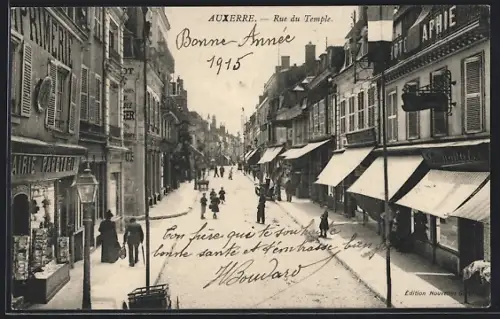 AUXERRE. — Rue du Temple.
Bonne Année
1915
PRIMERIE
Ton frère qui te souhaite
bonne santé et t'embrasse bien
H Boudard
Édition Nouvelles